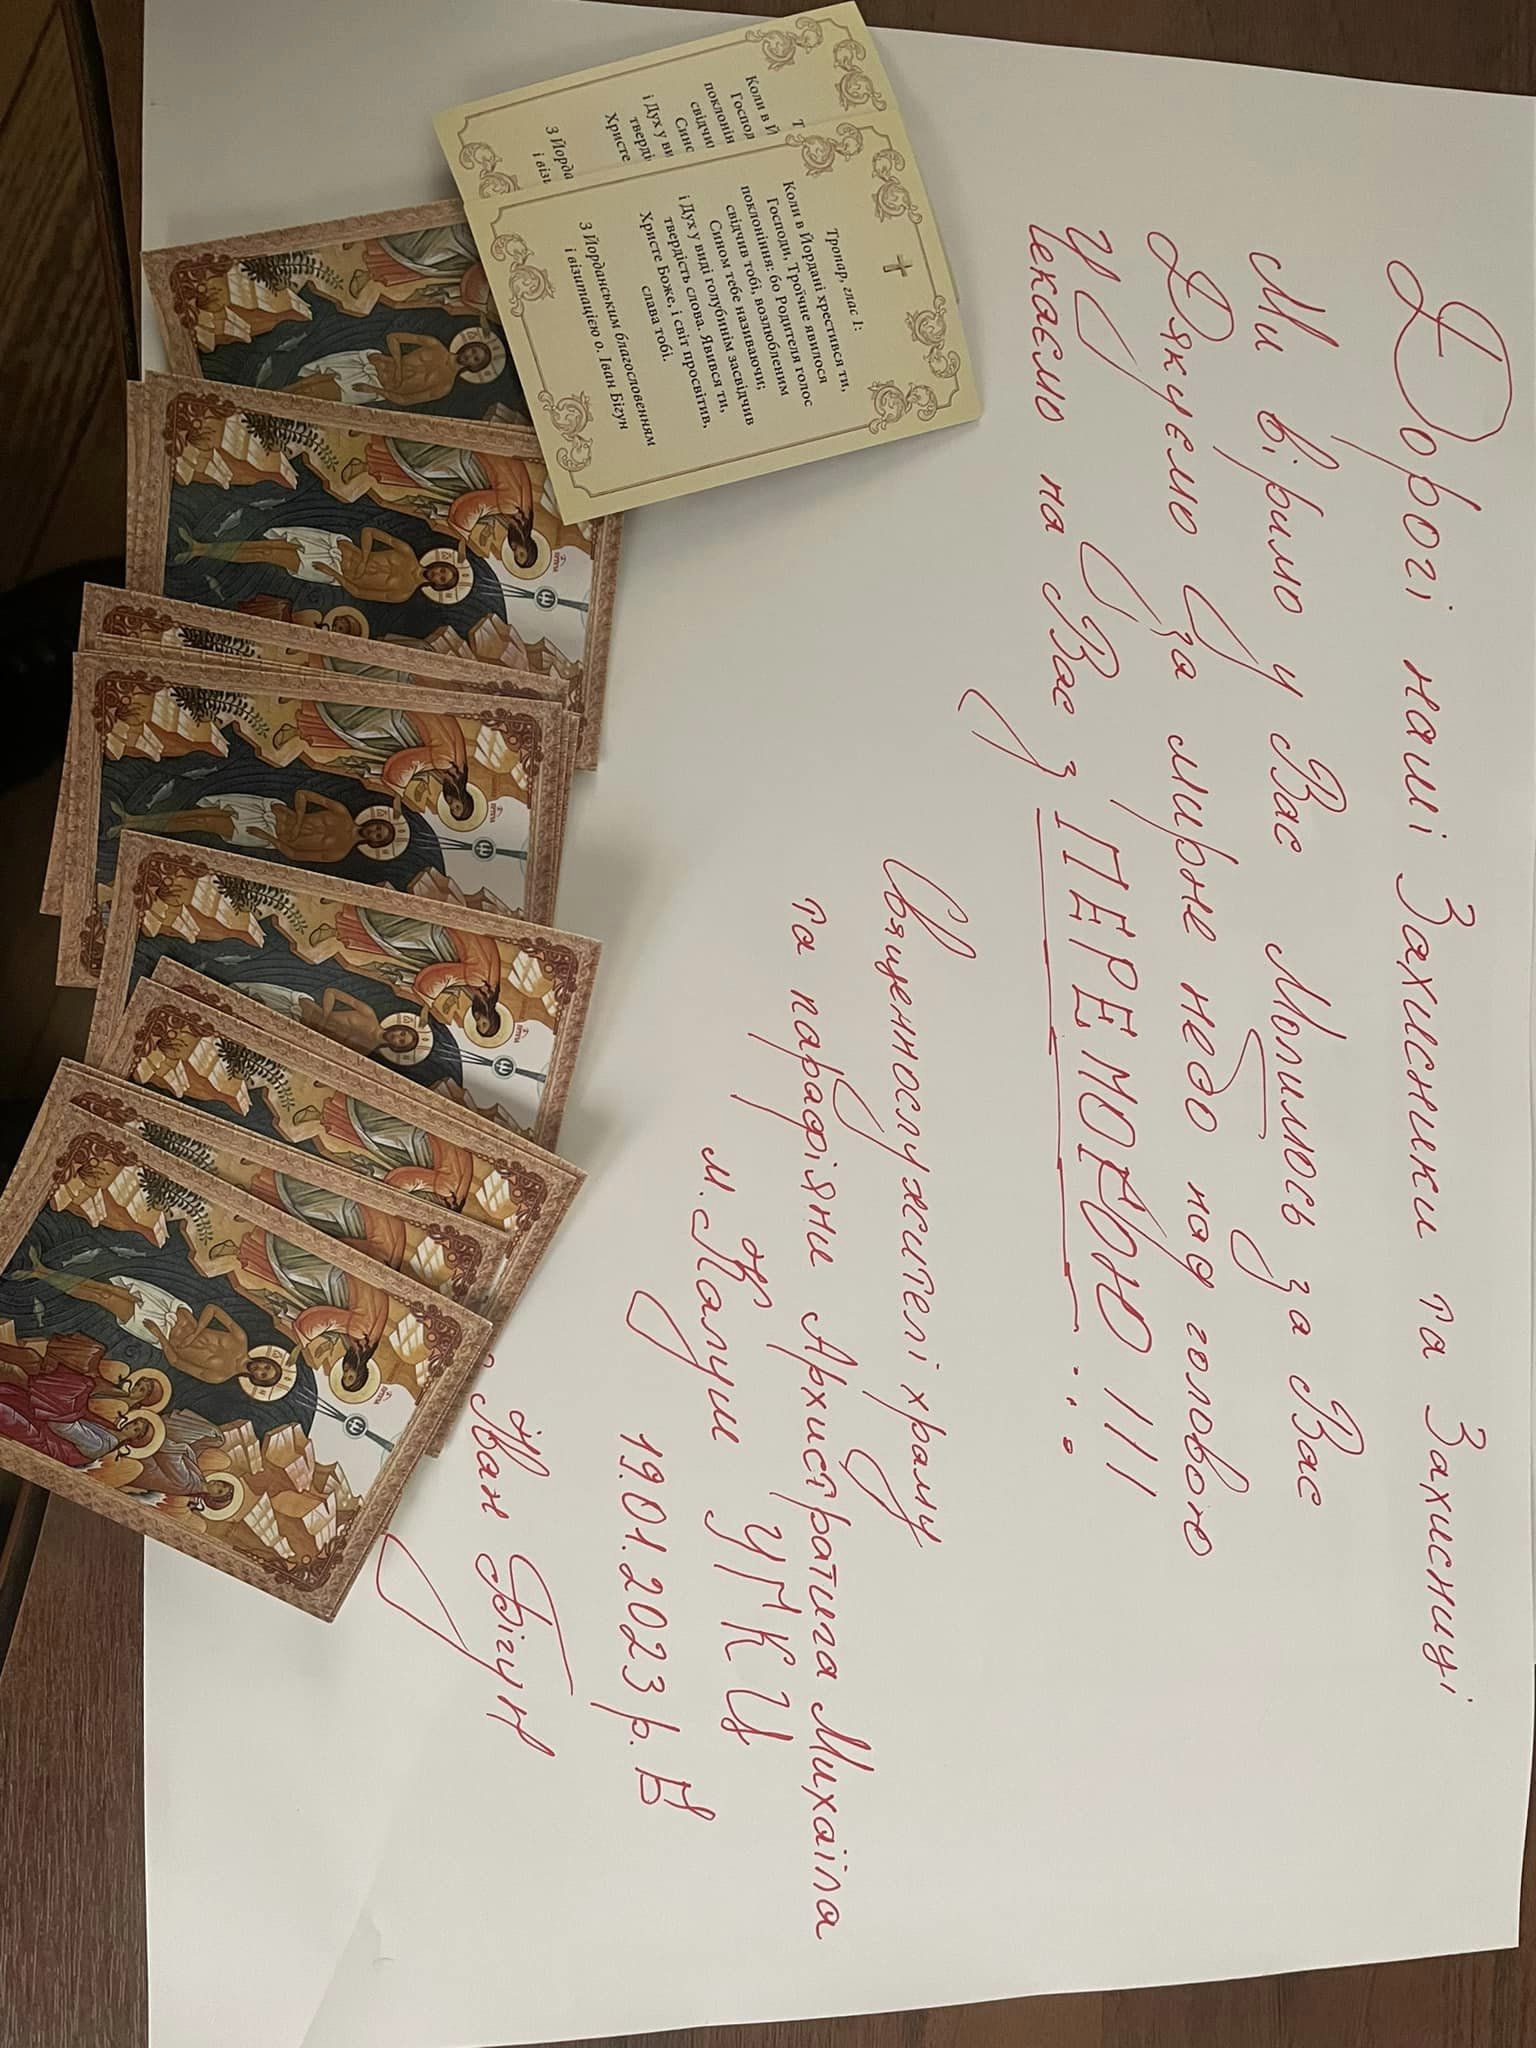 Дорогі наші Захисники та Захисниці
Ми віримо у Вас Молимось за Вас
Дякуємо за мирне небо над головою
Чекаємо на Вас з ПЕРЕМОГОЮ!!!
Священнослужителі храму
та парафіяни Архистратига Михаїла
м. Калуш УГКЦ
19.01.2023 р. Б
Іван Бігун
Тропар, глас 1:
Коли в Йордані хрестився ти,
Господи, Троїчне явилося
поклоніння: бо Родителя голос
свідчив тобі, возлюбленим
Сином тебе називаючи;
і Дух у виді голубинім засвідчив
твердість слова. Явився ти,
Христе Боже, і світ просвітив,
слава тобі.
З Йорданським благословенням
і візитацією о. Іван Бігун
Т
Коли в Й
Господ
поклонін
свідчи
Сино
і Дух у ви
тверді
Христе
З Йорда
і візи